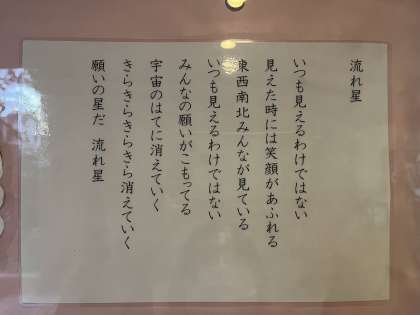 流れ星
いつも見えるわけではない
見えた時には笑顔があふれる
東西南北みんなが見ている
いつも見えるわけではない
みんなの願いがこもってる
宇宙のはてに消えていく
きらきらきらきら消えていく
願いの星だ　流れ星